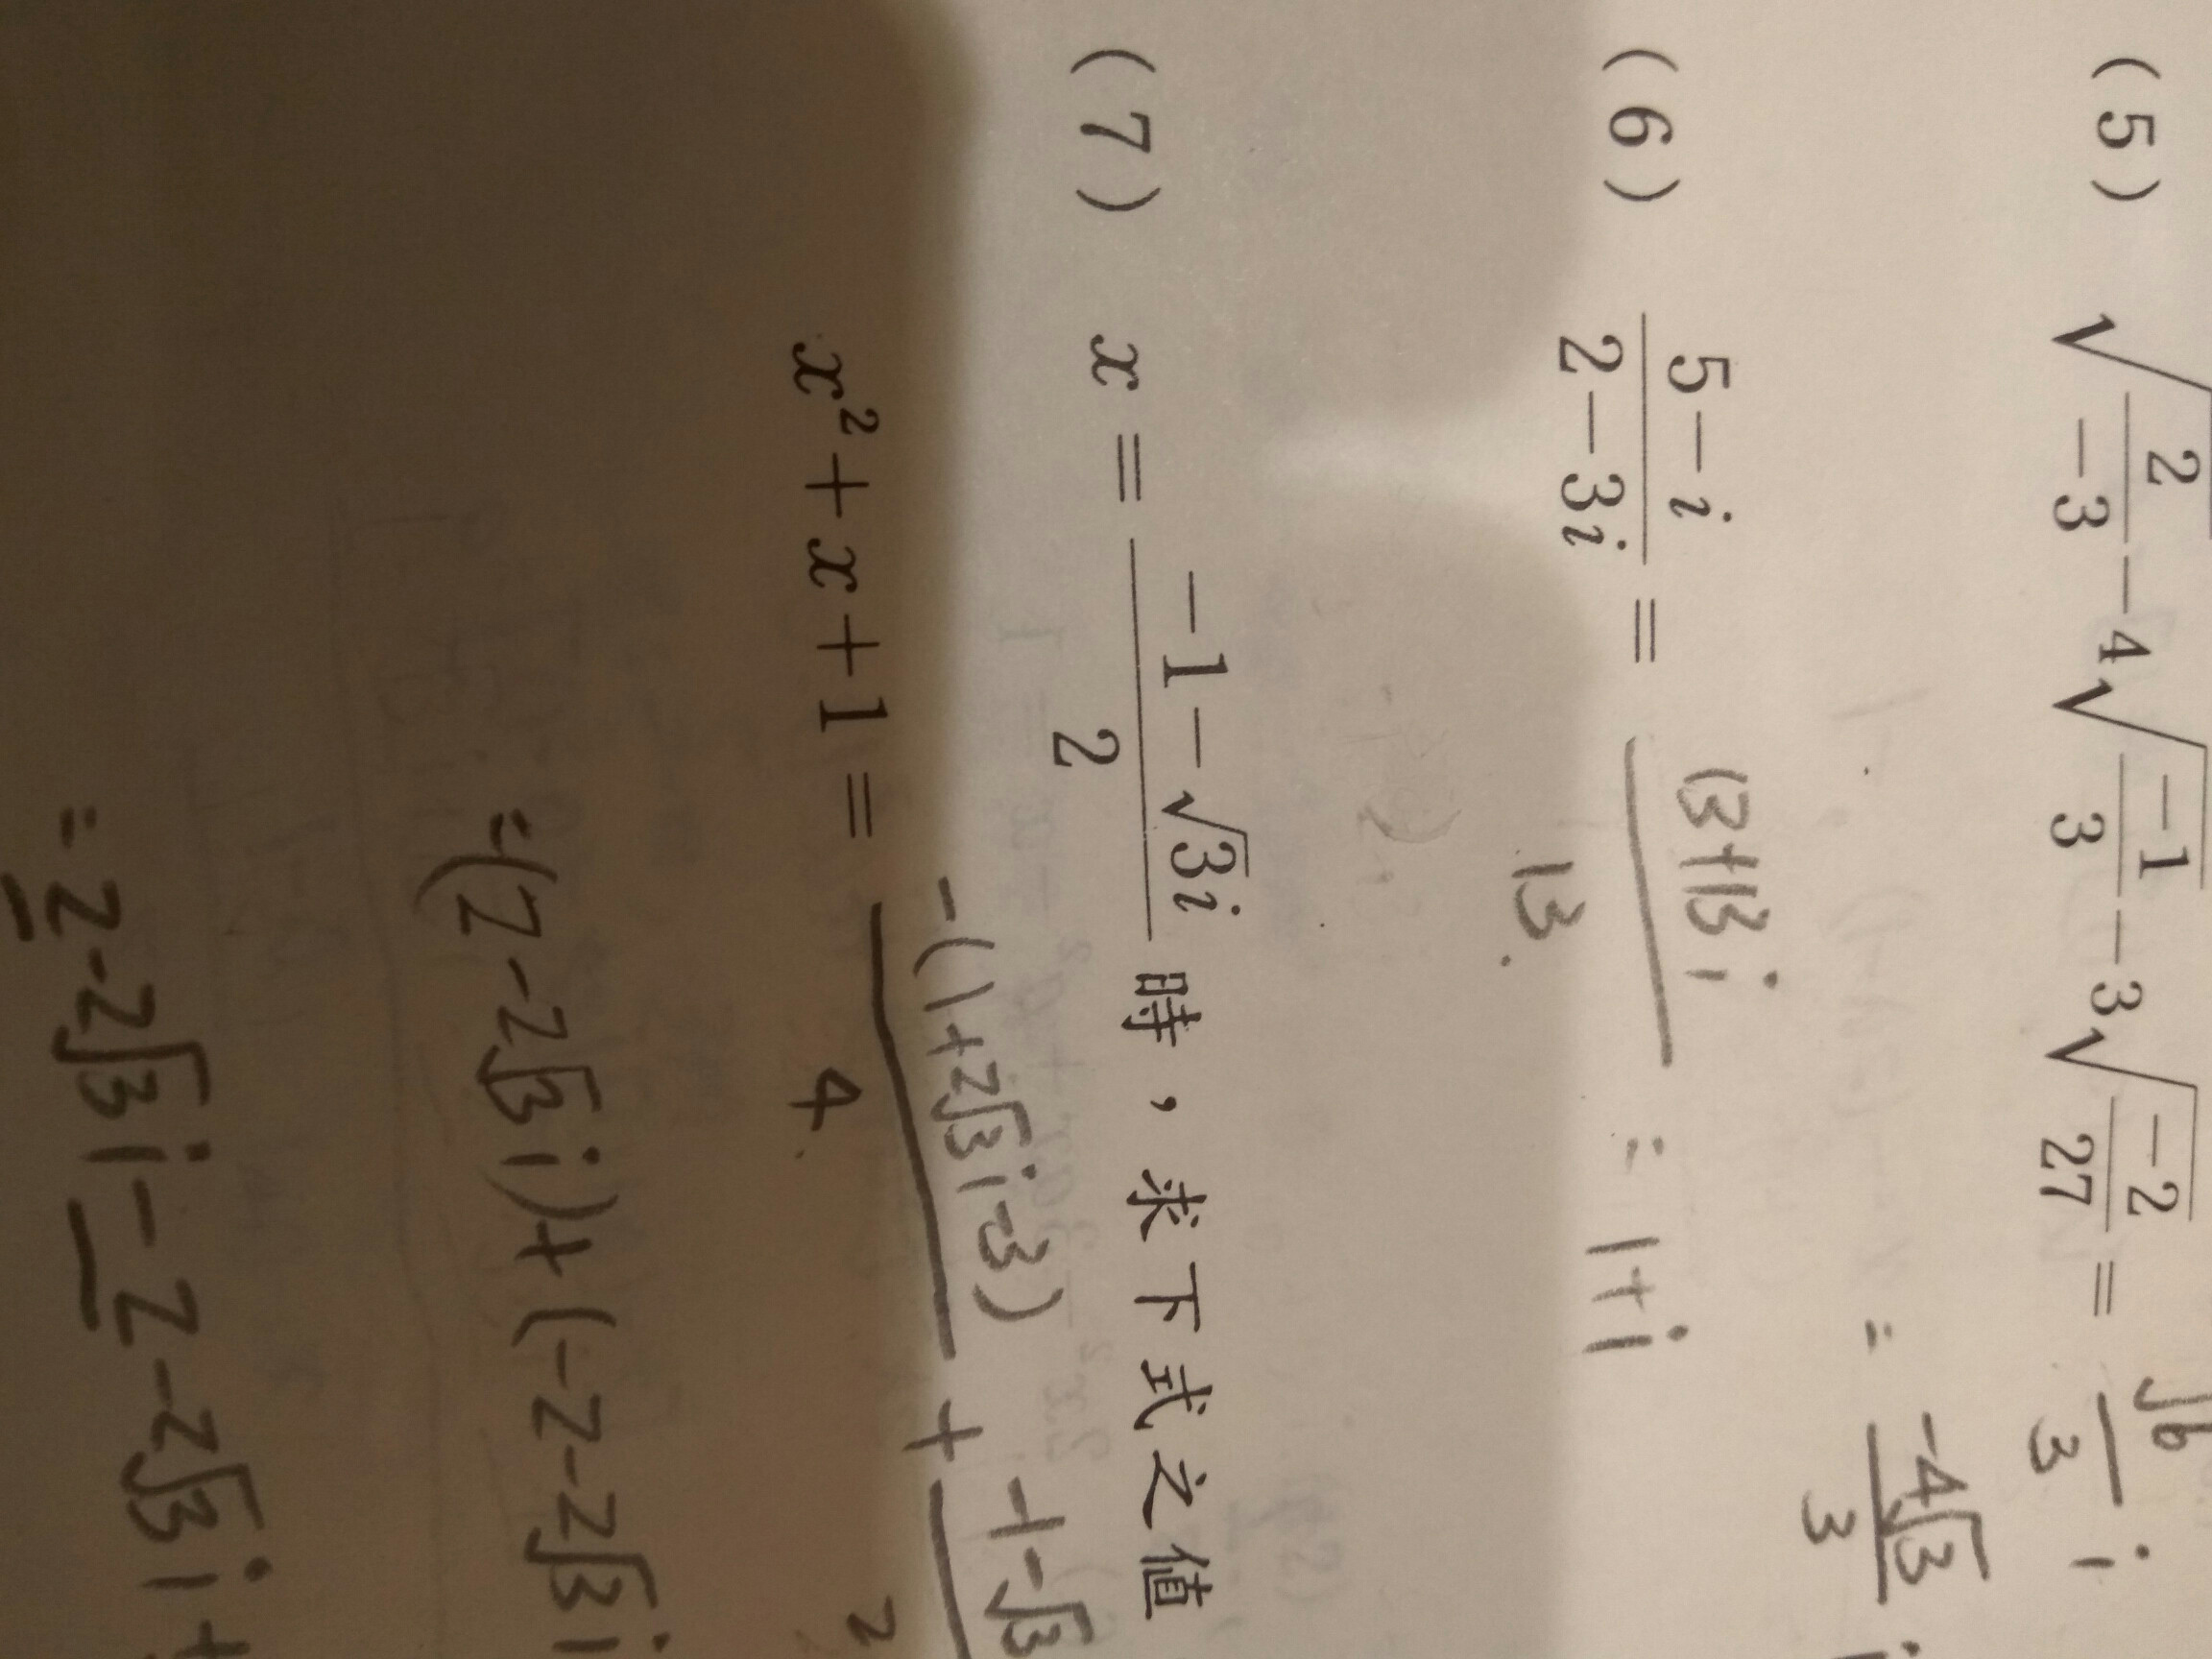 (5) √(2/−3) − 4√(−1/3) − 3√(−2/27) = √6/3 i
= −4√3/3 i
(6) (5−i)/(2−3i) = (13+13i)/13 = 1+i
(7) x = (−1−√3i)/2 時，求下式之值
x²+x+1 = −(1+2√3i−3)/4 + −1−√3/2
=(2−2√3i)+(−2−2√3i
=2−2√3i−2−2√3i+